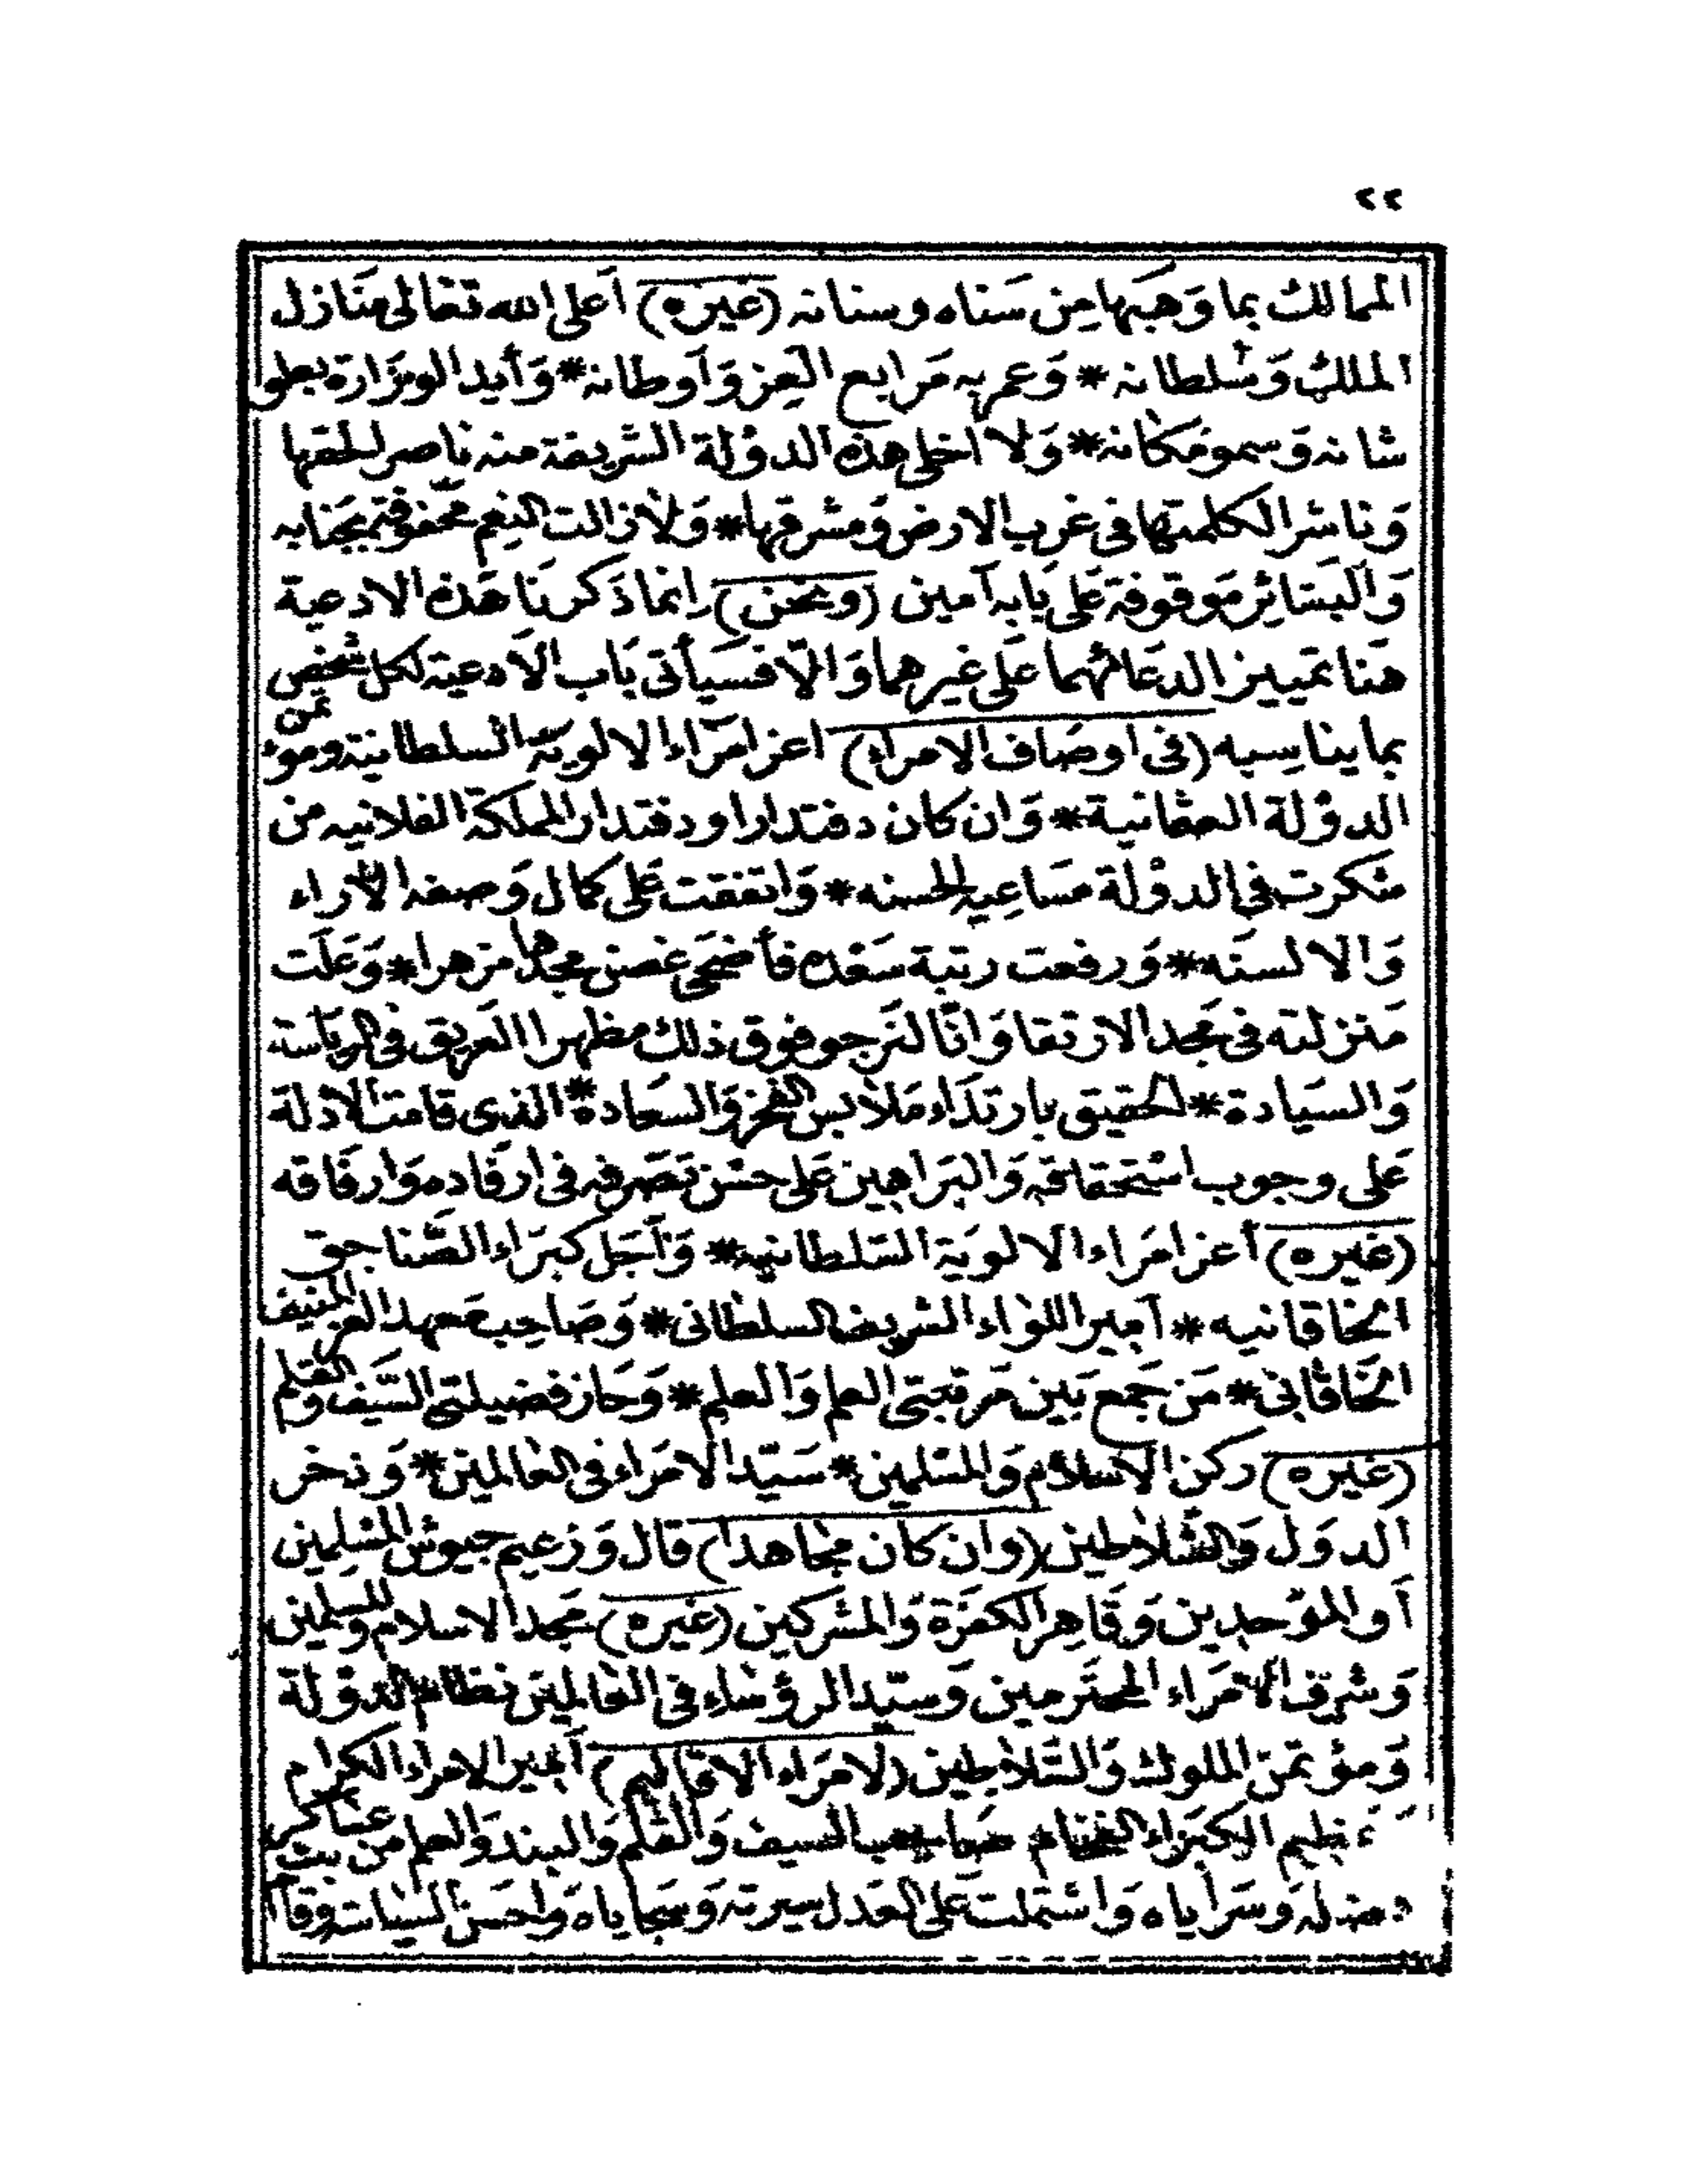 ٢٢
الممالك بما وَهبَها مِن سَناه وسنانه (غيره) أعلى الله تعالى منَازل
الملك وَسُلطانه * وَعمر به مَرابع العِز وَأوطانه * وَأيد الوزَارة بعلو
شانه وَسمو مَكانه * وَلا اخلى هذه الدوْلة الشريفة منه ناصر الحقها
وَناشرا لكلمتها في غرب الارض وَمشرقها * وَلازالت النِعَم محفوفة بجنابه
وَالبشائر مَوقوفة عَلى بَابه آمين (ونحن) انما ذكرنَا هَذه الادعية
هَنا تمييز الدعَائهما عَلى غيرهما وَالّا فسَيأتى بَاب الأدعية لكل شخص
بما يناسبه (فى اوصَاف الامراء) اعز امَرَاء الالويَة السلطانية ومؤتمن
الدوْلة العثمانية * وَان كان دفتدارا ودفتدار المملكة الفلانيه من
شكرت في الدوْلة مسَاعِيه الحسنه * وَاتفقت عَلى كمال وَصفه الآراء
وَالالسنَه * وَرفعت رتبة سَعْده فأضحَى غصن مجدها مزهرا * وَعَلَت
مَنزلته فى مَجد الارتقا وَانّا لنَرجو فوق ذلك مظهرا العَريق فى الريَاسة
وَالسيَادة * الحقيق بارتدَاء مَلابس الفخر وَالسعَادة * الذى قامت الادلة
عَلى وجوب اسْتحقاقه وَالبَراهين عَلى حسْن تصَرفه فى ارفَاده وَارفَاقه
(غيره) أعز امَراء الالويَة السّلطانيه * وَأجَل كبَرَاء الصَّناجق
الخاقانيه * أمير اللوَاء الشريف السلطانى * وَصَاحِب معهد العز المنيف
الخَاقَانى * مَن جَمع بَين مَرتبتى العلم وَالعلم * وَحَاز فضيلتى السَّيف وَالقلم
(غيره) ركن الاسلام وَالمسْلمين * سَيّد الامَراء فى العَالمين * وَذخر
الدوَل وَالسَّلاطين (وان كان مجَاهدا) قال وَزعيم جيوش المسْلِمين
أو الموَحدين وَقَاهِر الكفَرَة وَالمشركين (غيره) مَجد الاسلام وللمسلمين
وَشرَف الامَراء المحترَمين وَسيّد الرؤسَاء فى العَالمين نظام الدوْلة
وَمؤتمَن الملوك وَالسَّلاطين (لامَراء الاقاليم) أمير الامراء الكرام
الكبَرَاء الفخَام صَاحب السيف وَالقلم وَالبند وَالعلم من عسَاكره
وسَرَاياه وَاشتملت عَلى العَدل سيرته وَسجاياه وَاحسَن السيَاسة وقام